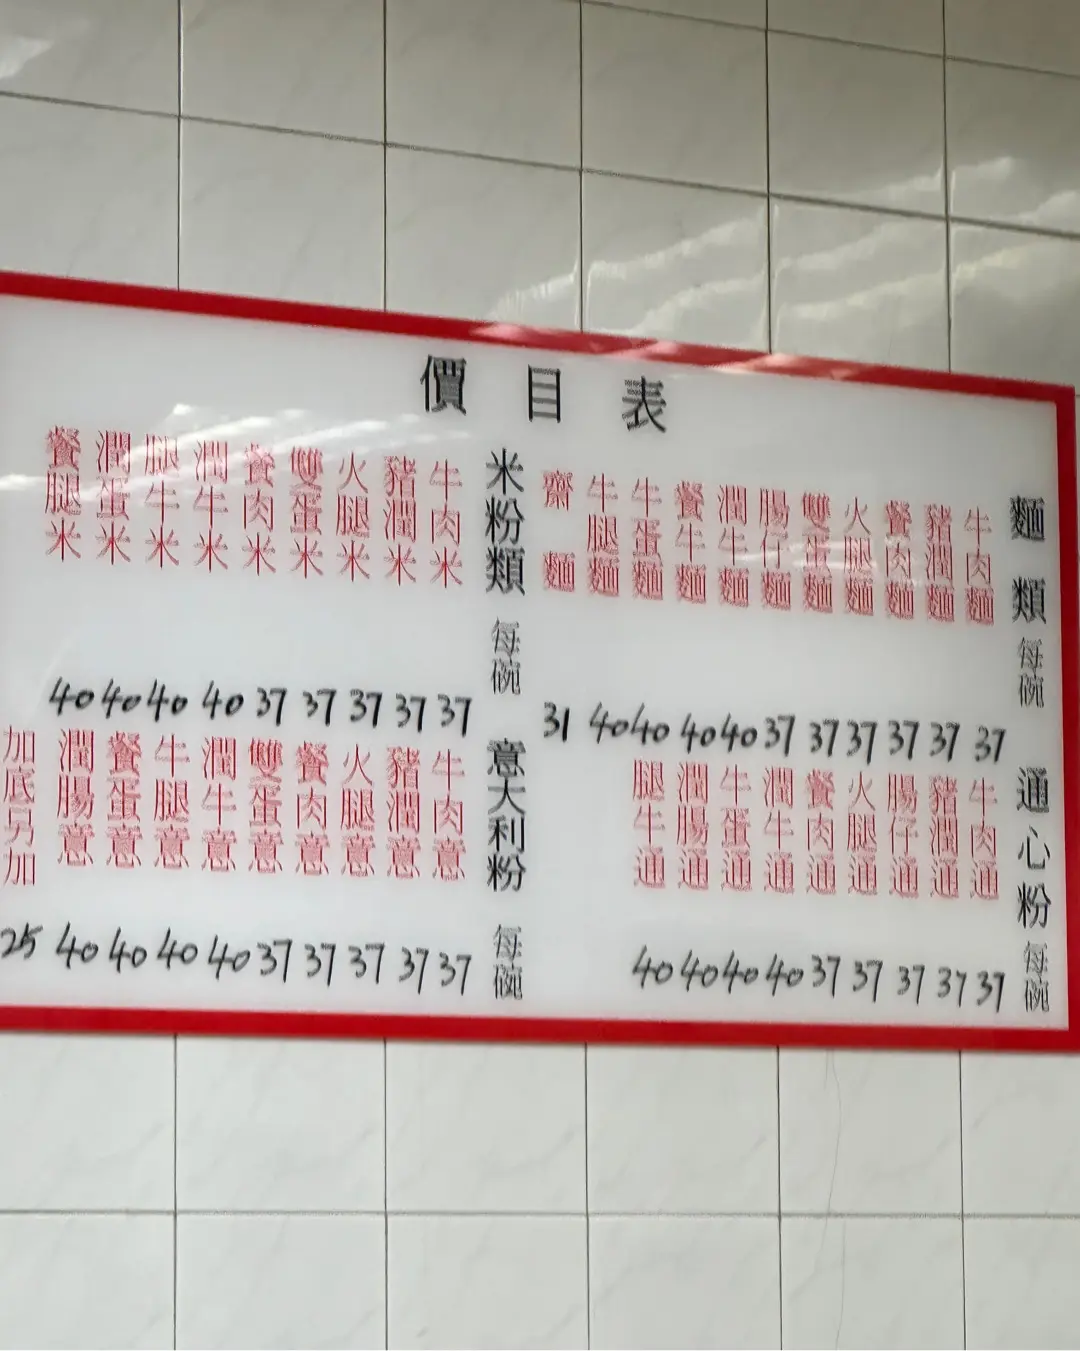 價目表
麵類 每碗
牛肉麵 37
豬潤麵 37
餐肉麵 37
火腿麵 37
雙蛋麵 37
腸仔麵 37
潤牛麵 40
餐牛麵 40
牛蛋麵 40
牛腿麵 40
齋麵 31
米粉類 每碗
牛肉米 37
豬潤米 37
火腿米 37
雙蛋米 37
餐肉米 37
潤牛米 40
腿牛米 40
潤蛋米 40
餐腿米 40
通心粉 每碗
牛肉通 37
豬潤通 37
腸仔通 37
火腿通 37
餐肉通 37
潤牛通 40
牛蛋通 40
潤腸通 40
腿牛通 40
意大利粉 每碗
牛肉意 37
豬潤意 37
火腿意 37
餐肉意 37
雙蛋意 37
潤牛意 40
牛腿意 40
餐蛋意 40
潤腸意 40
加底另加 25